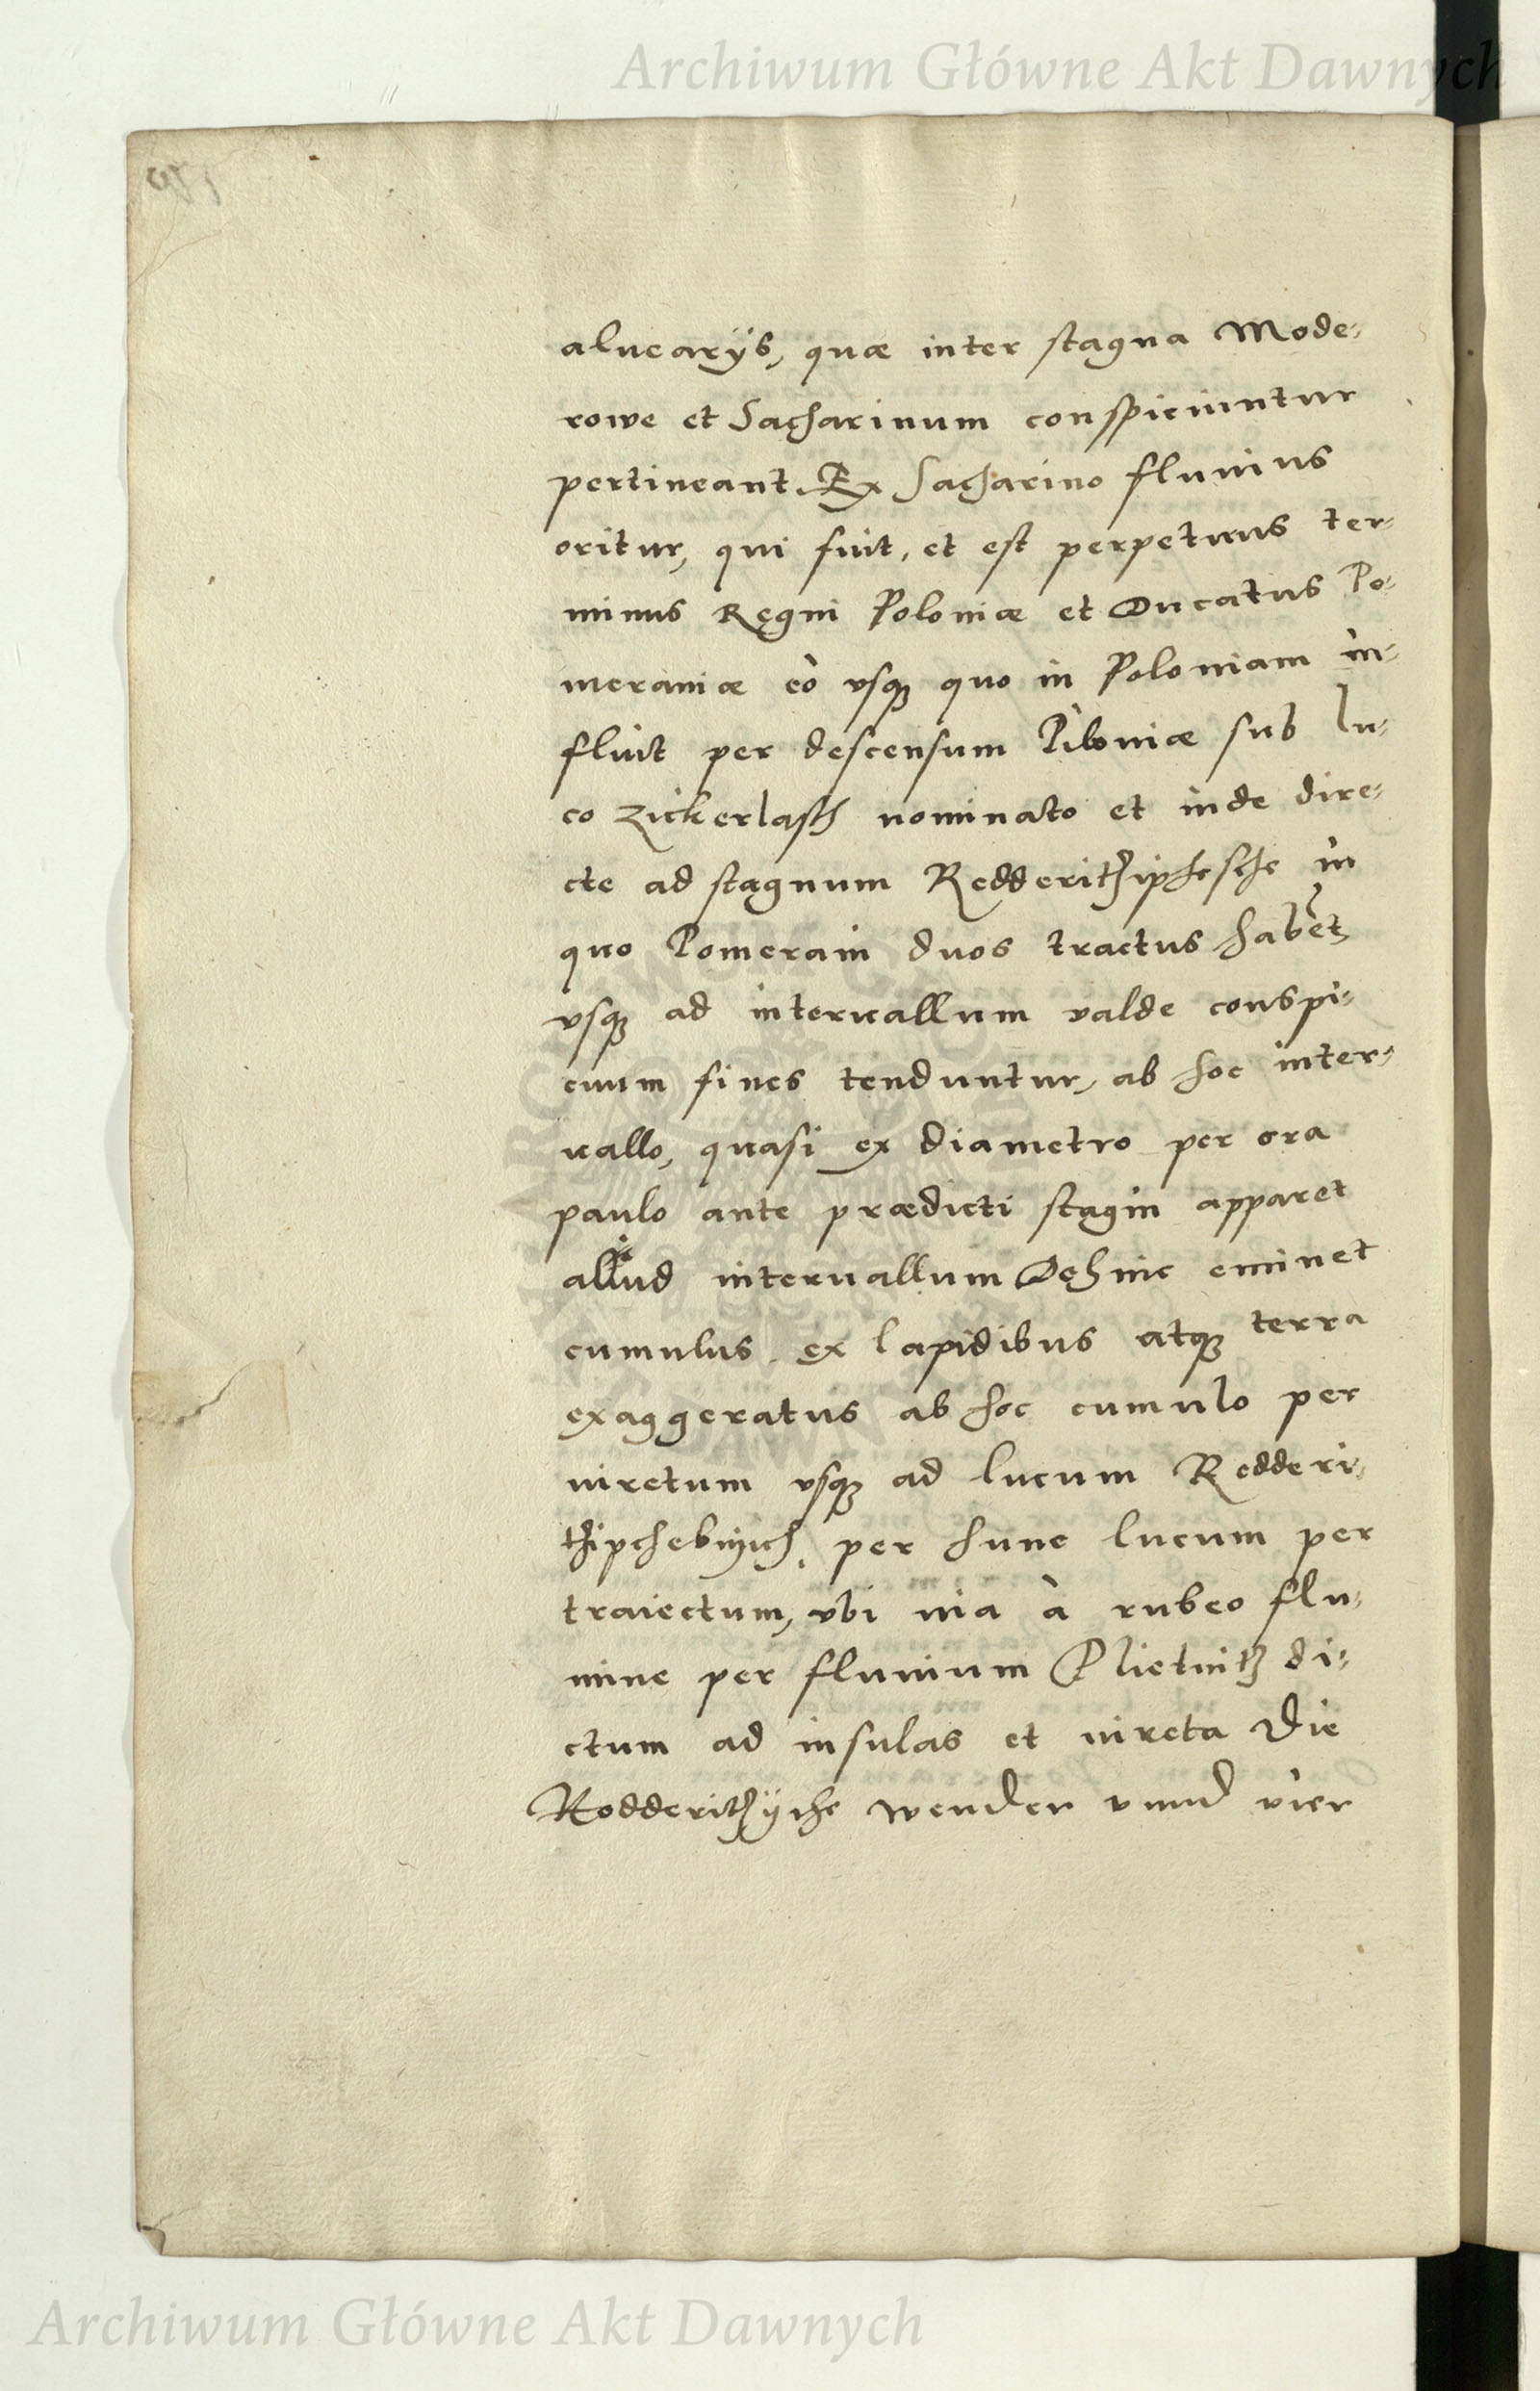 Archiwum Główne Akt Dawnych
aluearijs, quæ inter stagna Mode-
rowe et Sacharinum conspiciuntur
pertineant. Ex Sacharino fluuius
oritur, qui fuit, et est perpetuus ter-
minus Regni Poloniæ et Ducatus Po-
meraniæ eò usq; quo in Poloniam in-
fluit per descensum Piloniæ sub lu-
co Zickerlasch nominato et inde dire-
cte ad stagnum in
quo Pomerani duos tractus habet
vsq; ad interuallum valde conspi-
cuum fines tenduntur, ab hoc inter-
uallo, quasi ex diametro per ora
paulo ante prædicti stagni apparet
aliud interuallum Dehinc eminet
cumulus ex lapidibus atq; terra
exaggeratus ab hoc cumulo per
uiretum vsq; ad lucum Redderi-
per hunc lucum per
traiectum, vbi uia à rubeo flu-
mine per fluuium Plietnitz di-
ctum ad insulas et uireta Die
wender vnnd vier
Archiwum Główne Akt Dawnych